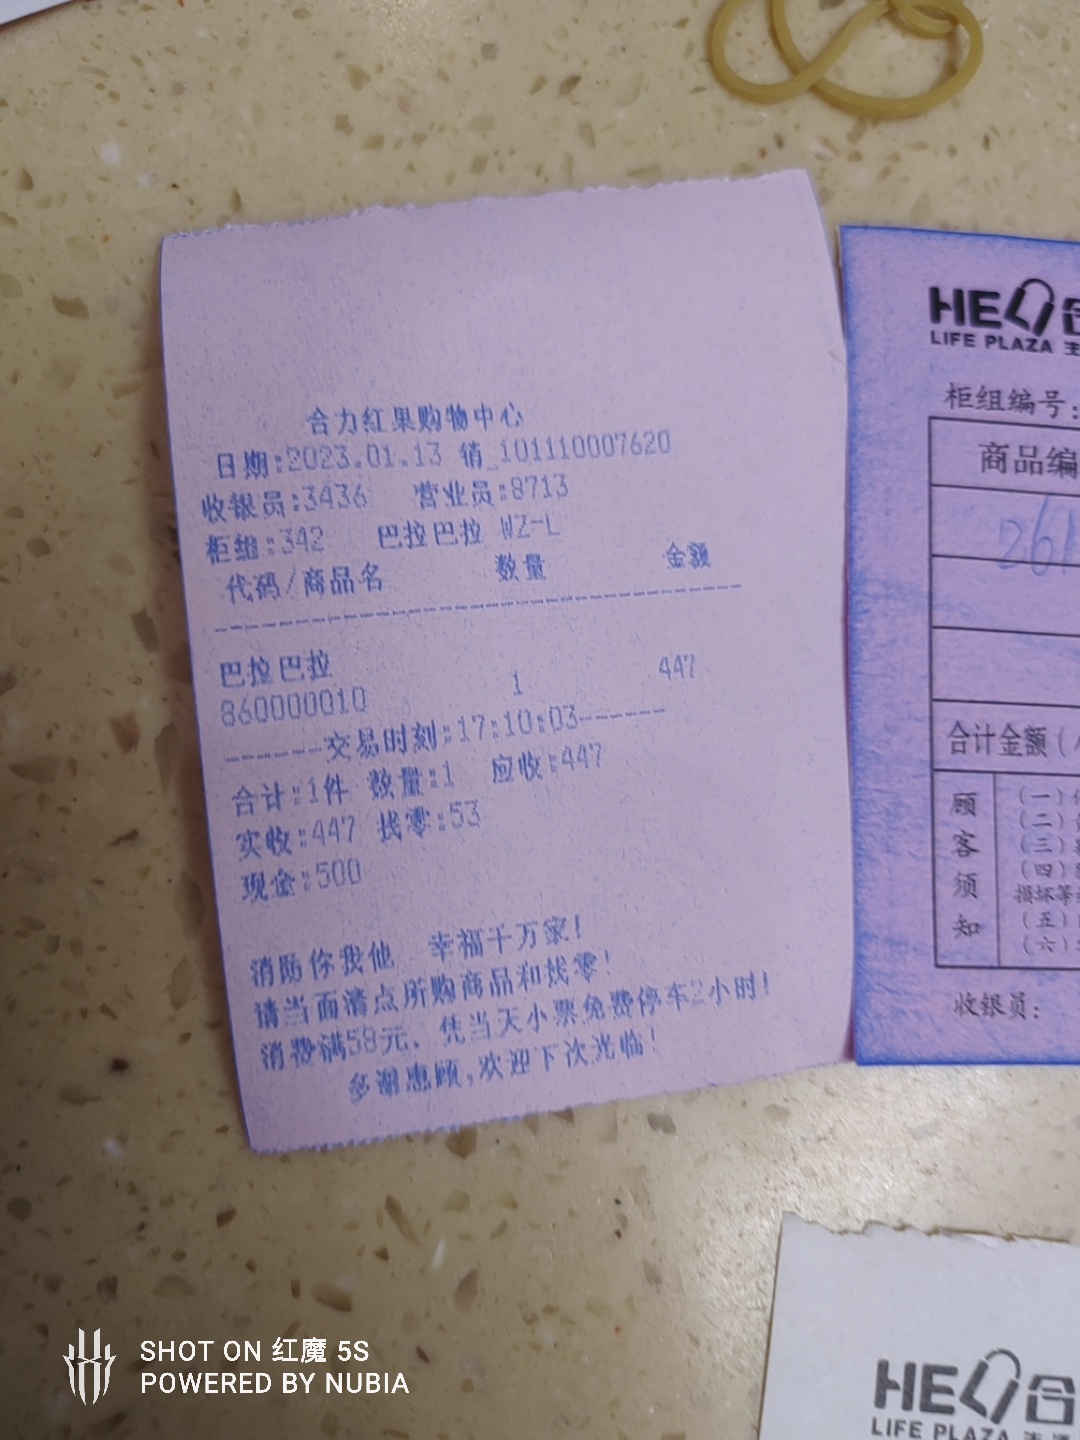 合力红果购物中心
日期:2023.01.13 销_101110007620
收银员:3436 营业员:8713
柜组:342 巴拉巴拉 WZ-L
代码/商品名 数量 金额
巴拉巴拉
860000010 1 447
交易时刻:17:10:03
合计:1件 数量:1 应收:447
实收:447 找零:53
现金:500
消防你我他 幸福千万家!
请当面清点所购商品和找零!
消费满58元, 凭当天小票免费停车2小时!
多谢惠顾,欢迎下次光临!
HE 合
LIFE PLAZA
柜组编号:
商品编
261
合计金额(
顾客须知
(一)
(二)
(三)
(四)
损坏等
(五)
(六)
收银员:
HE 合
LIFE PLAZA
SHOT ON 红魔 5S
POWERED BY NUBIA